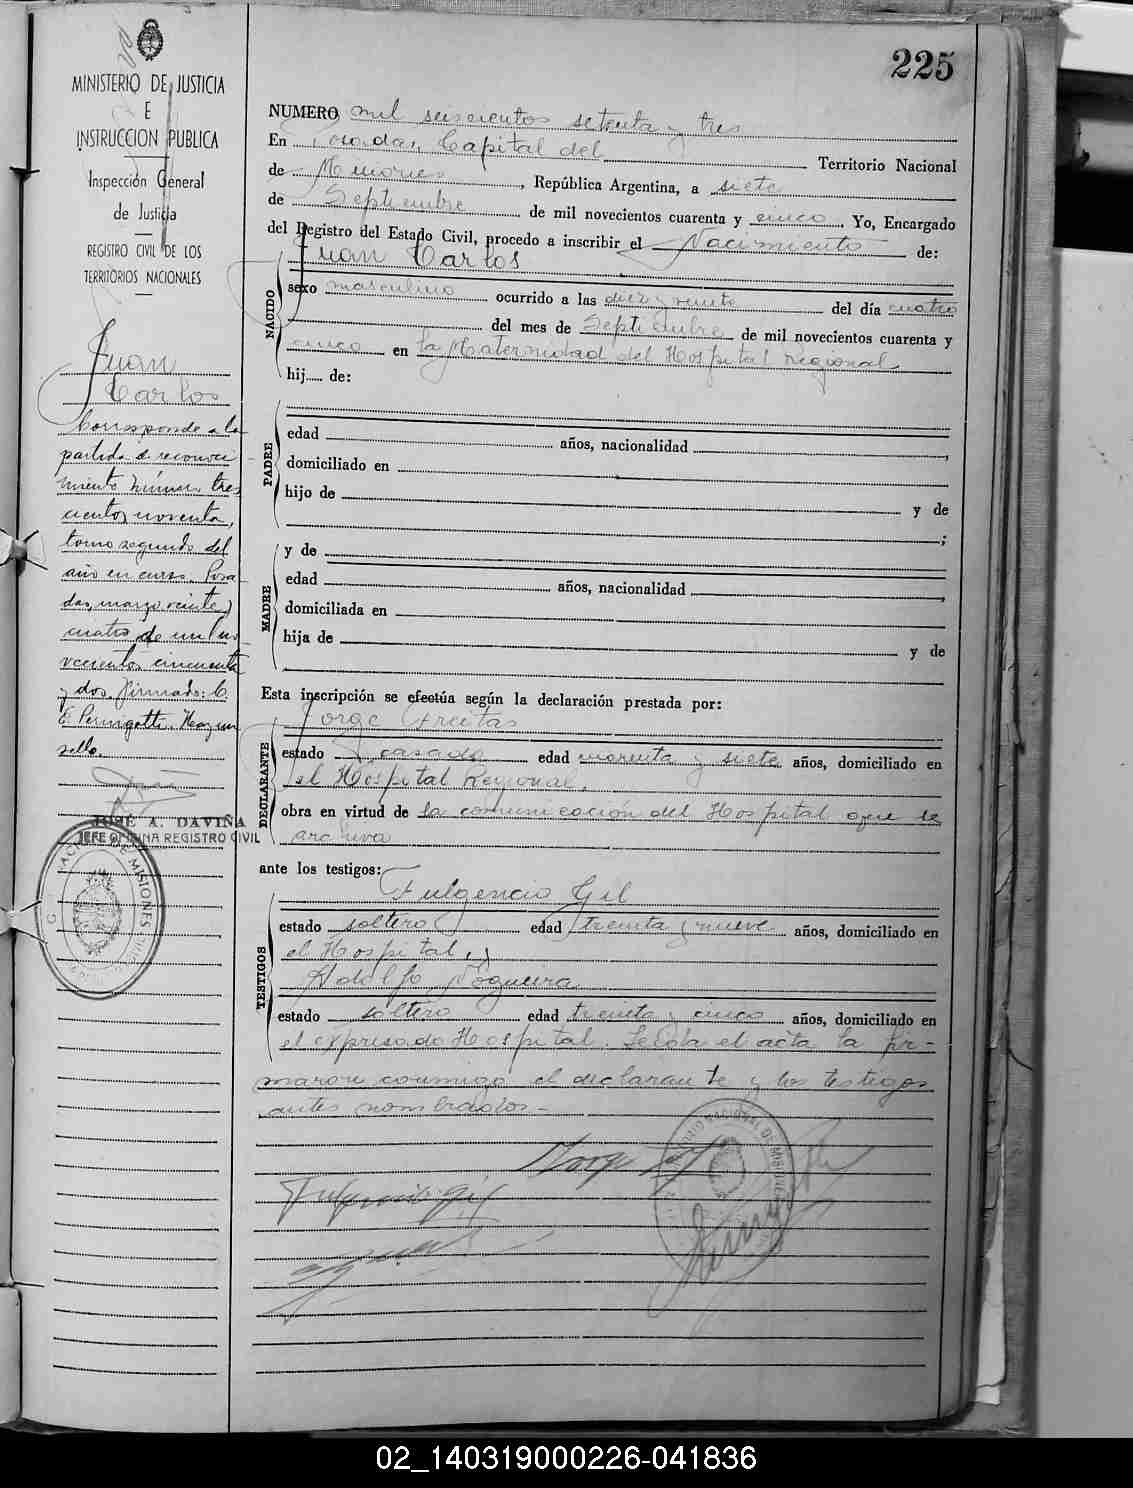 225
MINISTERIO DE JUSTICIA
E
INSTRUCCION PUBLICA
Inspección General
de Justicia
REGISTRO CIVIL DE LOS
TERRITORIOS NACIONALES
Juan
Carlos
Corresponde a la
partida de reconoci
miento número tres
cientos noventa,
tomo segundo del
año en curso. Posa
das, marzo veinte y
cuatro de mil no
vecientos cincuenta
y dos. Firmado: C.
E. Pernigotti. Hay un
sello.
JOSÉ A. DAVIÑA
JEFE OFICINA REGISTRO CIVIL
NACIONAL DE MISIONES
NUMERO mil seiscientos setenta y tres
En Posadas, Capital del Territorio Nacional
de Misiones, República Argentina, a siete
de Septiembre de mil novecientos cuarenta y cinco. Yo, Encargado
del Registro del Estado Civil, procedo a inscribir el Nacimiento de:
NACIDO
Juan Carlos
sexo masculino ocurrido a las diez y veinte del día cuatro
del mes de Septiembre de mil novecientos cuarenta y
cinco en la Maternidad del Hospital Regional
hij de:
PADRE
edad años, nacionalidad
domiciliado en
hijo de y de
;
MADRE
y de
edad años, nacionalidad
domiciliada en
hija de y de
Esta inscripción se efectúa según la declaración prestada por:
DECLARANTE
Jorge Freitas
estado casado edad cuarenta y siete años, domiciliado en
el Hospital Regional.
obra en virtud de la comunicación del Hospital que se
archiva
ante los testigos:
TESTIGOS
Fulgencio Gil
estado soltero edad treinta y nueve años, domiciliado en
el Hospital, y
Adolfo Nogueira
estado soltero edad treinta y cinco años, domiciliado en
el expresado Hospital. Leida el acta la fir-
maron conmigo el declarante y los testigos
antes nombrados.-
Jorge
Fulgencio Gil
NACIONAL DE MISIONES
02_140319000226-041836